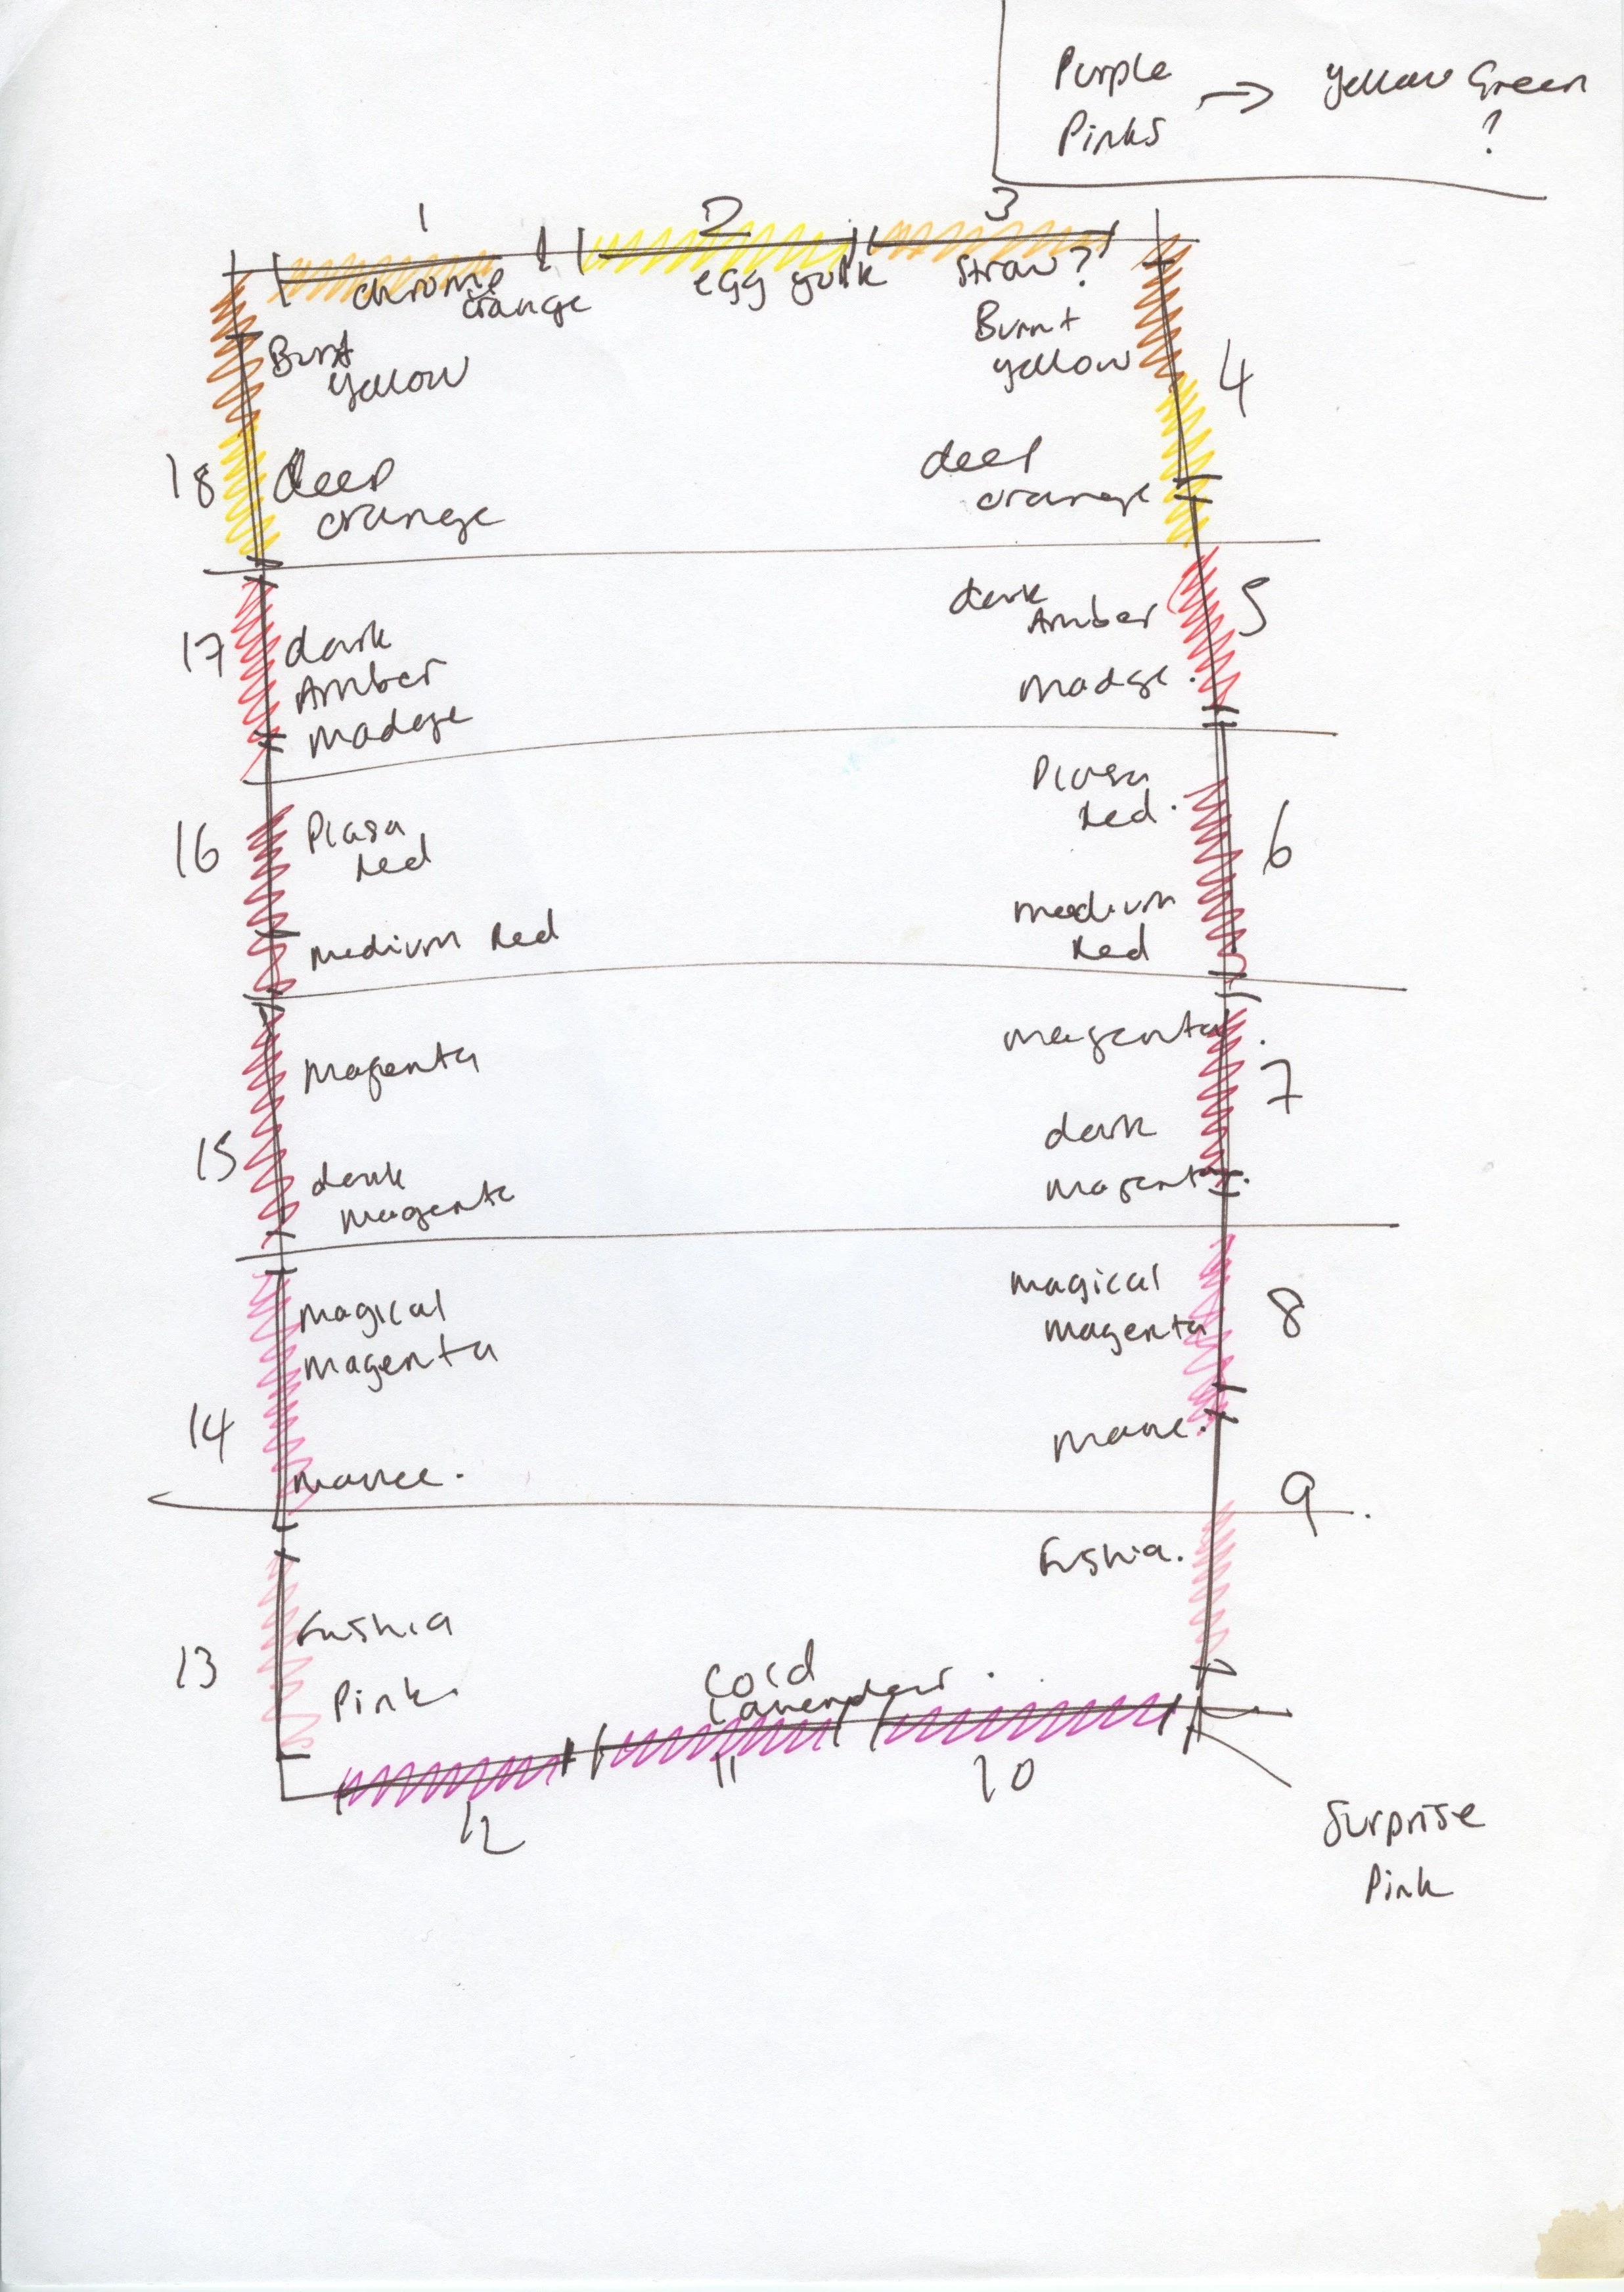 Purple → Yellow Green
Pinks ?
1 2 3
chrome egg yolk straw?
orange
Burnt Burnt
yellow yellow 4
18 deep deep
orange orange
17 dark dark 5
Amber Amber
madge madge.
16 Plasa Plasa 6
Red Red.
medium Red medium
Red
magenta magenta.
7
15 dark dark
magenta magenta.
magical magical 8
magenta magenta
14 mauve. mauve.
9.
Fushia Fushia.
13 Pink.
cold
Lavender.
12 11 10
Surprise
Pink